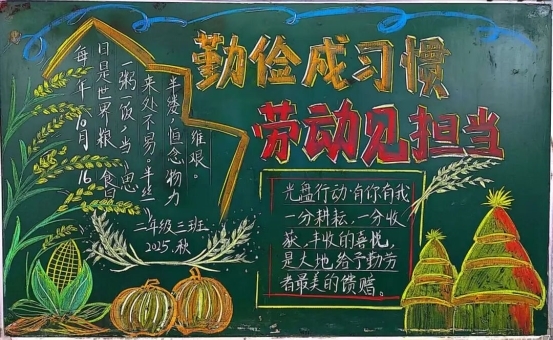 勤俭成习惯
劳动见担当
每年10月16
日是世界粮食日
一粥一饭,当思
来处不易。半丝
半缕,恒念物力
维艰。
二年级三班
2025.秋
光盘行动·有你有我
一分耕耘,一分收
获,丰收的喜悦,
是大地给予勤劳
者最美的馈赠。